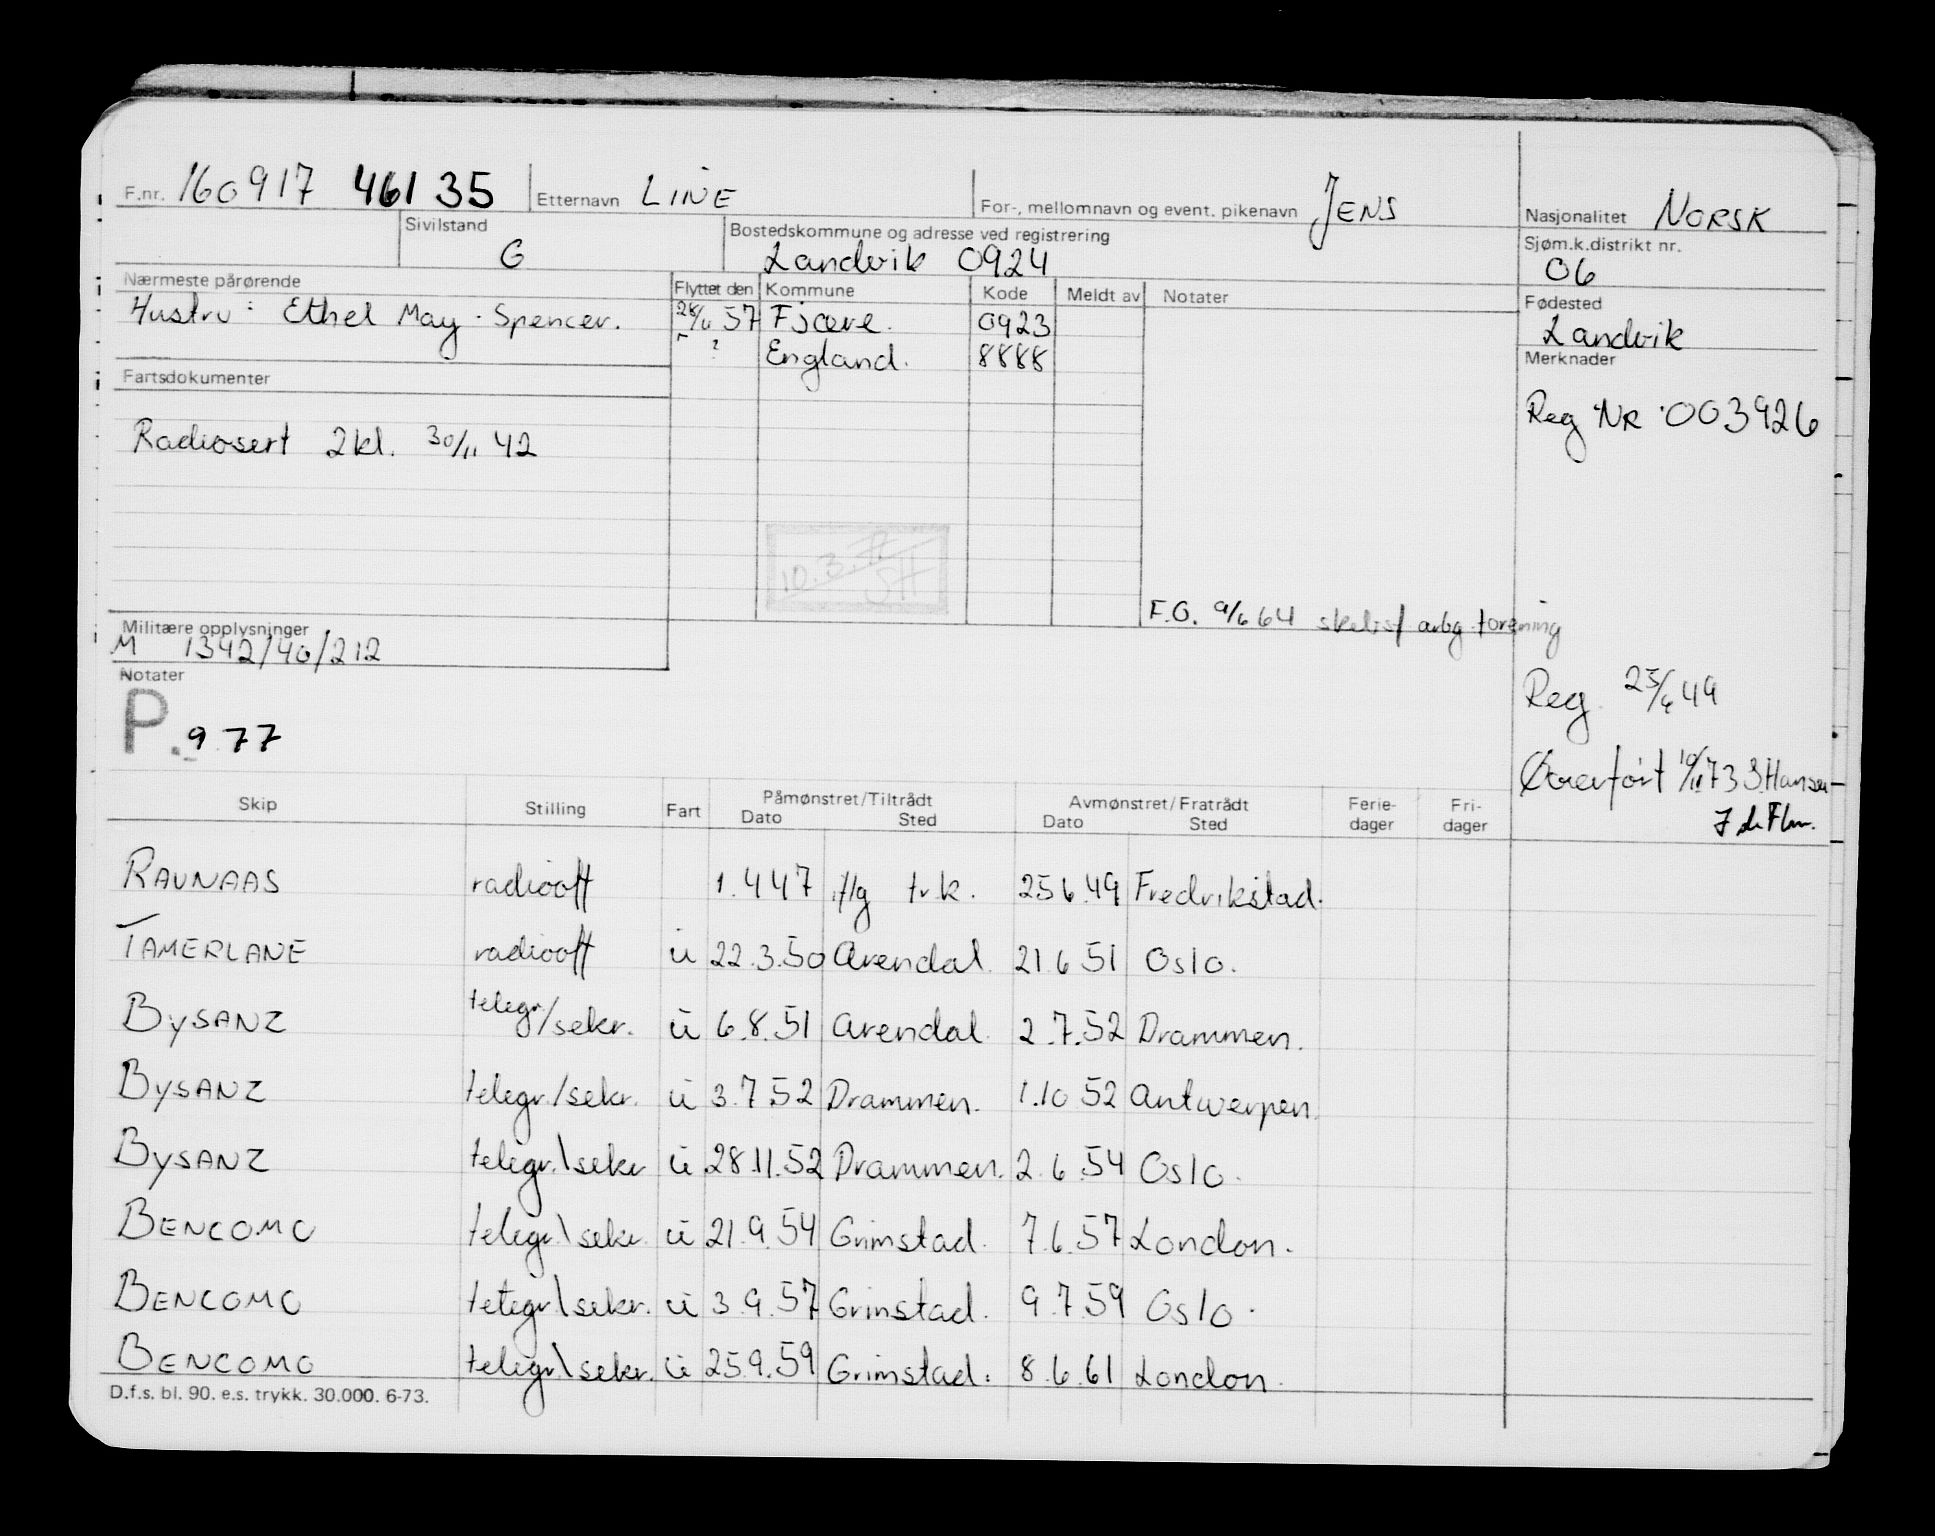 F.nr. 160917 46135 Etternavn LINE For-, mellomnavn og event. pikenavn JENS Nasjonalitet NORSK
Sivilstand G Bostedskommune og adresse ved registrering Landvik 0924 Sjøm.k.distrikt nr. 06
Nærmeste pårørende Flyttet den Kommune Kode Meldt av Notater Fødested
Hustru: Ethel May Spencer. 57 Fjære. 0923 Landvik
? England. 8888 Merknader
Fartsdokumenter
Reg NR 003926
Radiosert 2kl. 30/11 42
10.3.
Militære opplysninger
M 1342/40/212
F.O. 9/6 64 arbg. forening
Notater
P. 9 77
Reg. 25/6 49
Overført 10/11 73 S.Hansen
Skip Stilling Fart Påmønstret/Tiltrådt Dato Sted Avmønstret/Fratrådt Dato Sted Ferie-dager Fri-dager
RAVNAAS radiooff 1.4 47 flg trk. 25 6.49 Fredrikstad.
TAMERLANE radiooff u 22.3.50 Arendal. 21.6 51 Oslo.
BYSANZ telegr/sekr. u 6.8.51 Arendal. 2.7.52 Drammen.
BYSANZ telegr./sekr. u 3.7 52 Drammen. 1.10 52 Antwerpen.
BYSANZ telegr.\sekr u 28.11.52 Drammen. 2.6.54 Oslo.
BENCOMO telegr.\sekr. u 21.9.54 Grimstad. 7.6.57 London.
BENCOMO telegr.\sekr. u 3.9.57 Grimstad. 9.7.59 Oslo.
BENCOMO telegr.\sekr. u 25.9.59 Grimstad. 8.6.61 London.
D.f.s. bl. 90. e.s. trykk. 30.000. 6-73.